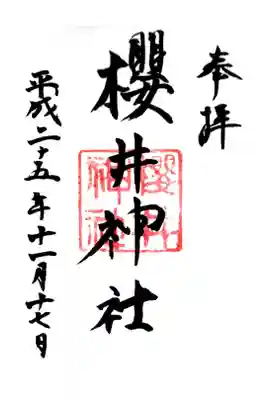 奉拝
櫻井神社
櫻井神社
平成二十五年十一月十七日